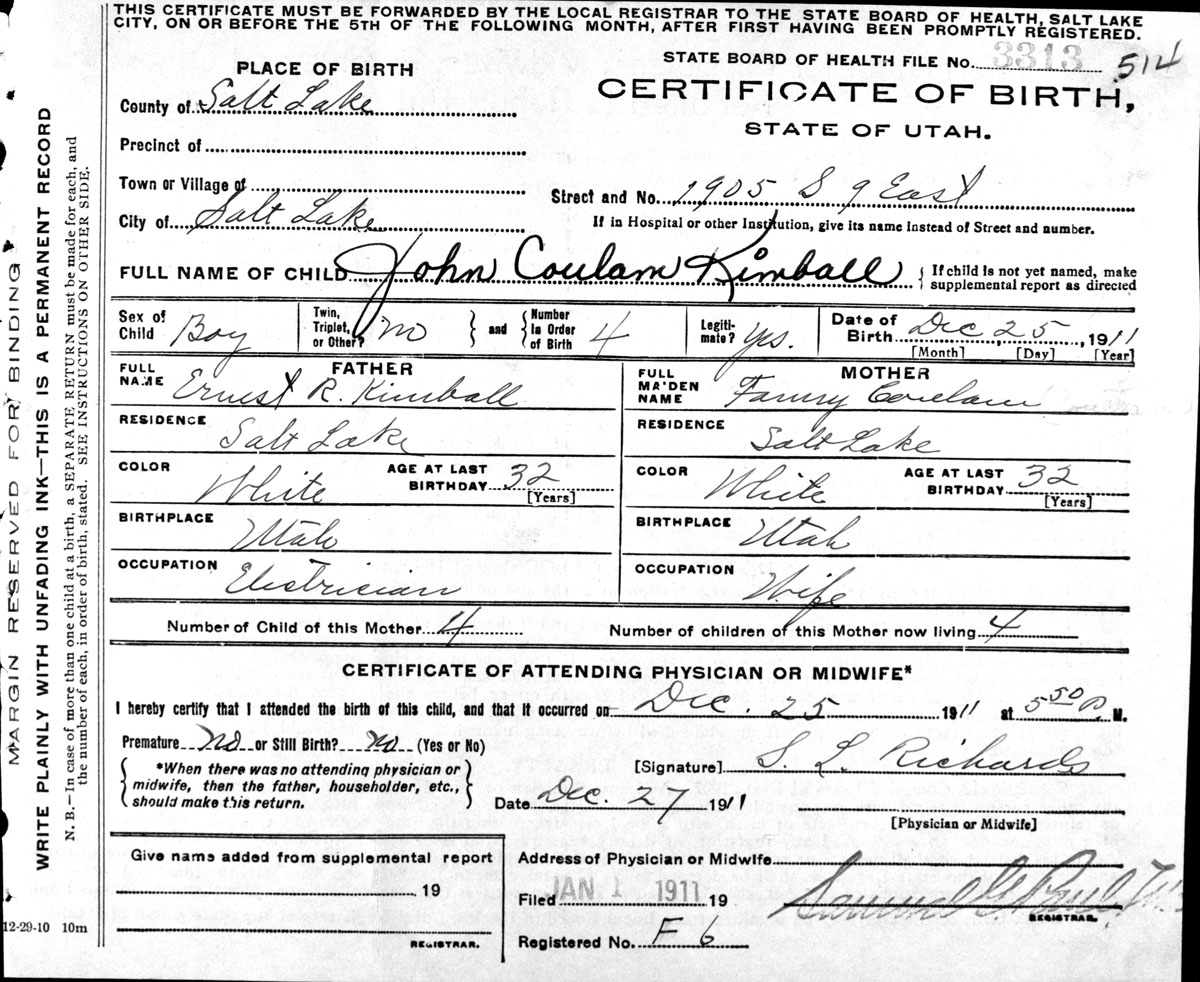 THIS CERTIFICATE MUST BE FORWARDED BY THE LOCAL REGISTRAR TO THE STATE BOARD OF HEALTH, SALT LAKE
CITY, ON OR BEFORE THE 5TH OF THE FOLLOWING MONTH, AFTER FIRST HAVING BEEN PROMPTLY REGISTERED.
STATE BOARD OF HEALTH FILE No. 3313 514
PLACE OF BIRTH
CERTIFICATE OF BIRTH,
STATE OF UTAH.
County of Salt Lake
Precinct of
Town or Village of
Street and No. 1905 S 9 East
City of Salt Lake
If in Hospital or other Institution, give its name instead of Street and number.
FULL NAME OF CHILD John Coulam Kimball
{ If child is not yet named, make
supplemental report as directed
Sex of Child Boy
Twin, Triplet, or Other? no } and { Number in Order of Birth 4
Legiti-mate? Yes.
Date of Birth Dec 25 1911
[Month] [Day] [Year]
FATHER
FULL NAME Ernest R. Kimball
RESIDENCE Salt Lake
COLOR White AGE AT LAST BIRTHDAY 32 [Years]
BIRTHPLACE Utah
OCCUPATION Electrician
MOTHER
FULL MAIDEN NAME Fanny Coulam
RESIDENCE Salt Lake
COLOR White AGE AT LAST BIRTHDAY 32 [Years]
BIRTHPLACE Utah
OCCUPATION Wife
Number of Child of this Mother 4 Number of children of this Mother now living 4
CERTIFICATE OF ATTENDING PHYSICIAN OR MIDWIFE*
I hereby certify that I attended the birth of this child, and that it occurred on Dec. 25 1911 at 5 50 P. M.
Premature No or Still Birth? No (Yes or No)
{ *When there was no attending physician or
midwife, then the father, householder, etc.,
should make this return. }
[Signature] S. L. Richards
Date Dec. 27 1911
[Physician or Midwife]
Give name added from supplemental report
19
REGISTRAR.
Address of Physician or Midwife
Filed JAN 1 1911 19
Samuel G Paul
REGISTRAR.
Registered No. F 6
12-29-10 10m
MARGIN RESERVED FOR BINDING
WRITE PLAINLY WITH UNFADING INK—THIS IS A PERMANENT RECORD
N. B.—In case of more than one child at a birth, a SEPARATE RETURN must be made for each, and
the number of each, in order of birth, stated. SEE INSTRUCTIONS ON OTHER SIDE.